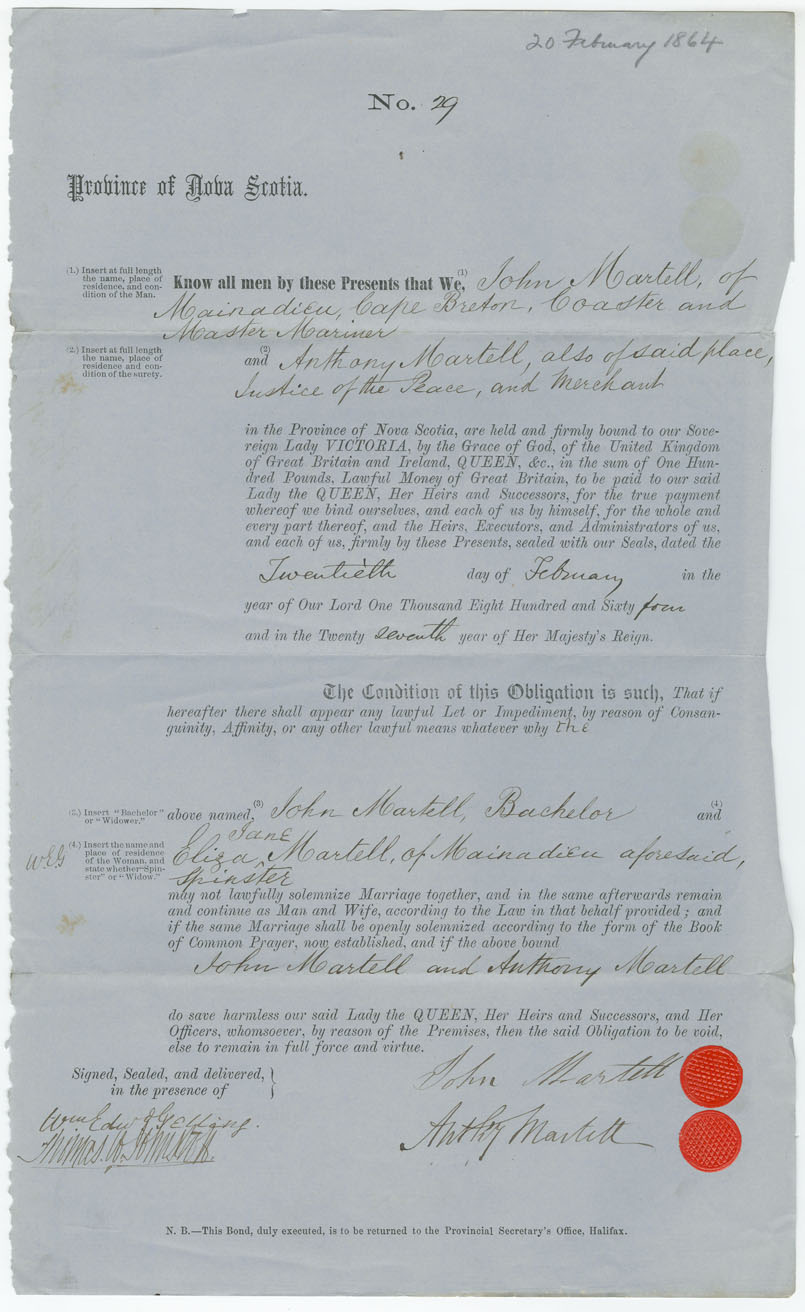 20 February 1864
No. 29
Province of Nova Scotia.
(1.) Insert at full length
the name, place of
residence, and con-
dition of the Man.
Know all men by these Presents that We, (1) John Martell, of
Mainadieu, Cape Breton, Coaster and
Master Mariner
(2.) Insert at full length
the name, place of
residence and con-
dition of the surety.
(2)
and Anthony Martell, also of said place,
Justice of the Peace, and Merchant
in the Province of Nova Scotia, are held and firmly bound to our Sove-
reign Lady VICTORIA, by the Grace of God, of the United Kingdom
of Great Britain and Ireland, QUEEN, &c., in the sum of One Hun-
dred Pounds, Lawful Money of Great Britain, to be paid to our said
Lady the QUEEN, Her Heirs and Successors, for the true payment
whereof we bind ourselves, and each of us by himself, for the whole and
every part thereof, and the Heirs, Executors, and Administrators of us,
and each of us, firmly by these Presents, sealed with our Seals, dated the
Twentieth day of February in the
year of Our Lord One Thousand Eight Hundred and Sixty four
and in the Twenty seventh year of Her Majesty's Reign.
The Condition of this Obligation is such, That if
hereafter there shall appear any lawful Let or Impediment, by reason of Consan-
guinity, Affinity, or any other lawful means whatever why the
(3.) Insert "Bachelor"
or "Widower."
above named, (3) John Martell, Bachelor (4) and
(4.) Insert the name and
place of residence
of the Woman, and
state whether "Spin-
ster" or "Widow."
WEG
Jane
Eliza ^ Martell, of Mainadieu aforesaid,
Spinster
may not lawfully solemnize Marriage together, and in the same afterwards remain
and continue as Man and Wife, according to the Law in that behalf provided; and
if the same Marriage shall be openly solemnized according to the form of the Book
of Common Prayer, now established, and if the above bound
John Martell and Anthony Martell
do save harmless our said Lady the QUEEN, Her Heirs and Successors, and Her
Officers, whomsoever, by reason of the Premises, then the said Obligation to be void,
else to remain in full force and virtue.
Signed, Sealed, and delivered,
in the presence of
John Martell
Wm Edw Gelling.
Anthy Martell
Thomas
N. B.—This Bond, duly executed, is to be returned to the Provincial Secretary's Office, Halifax.